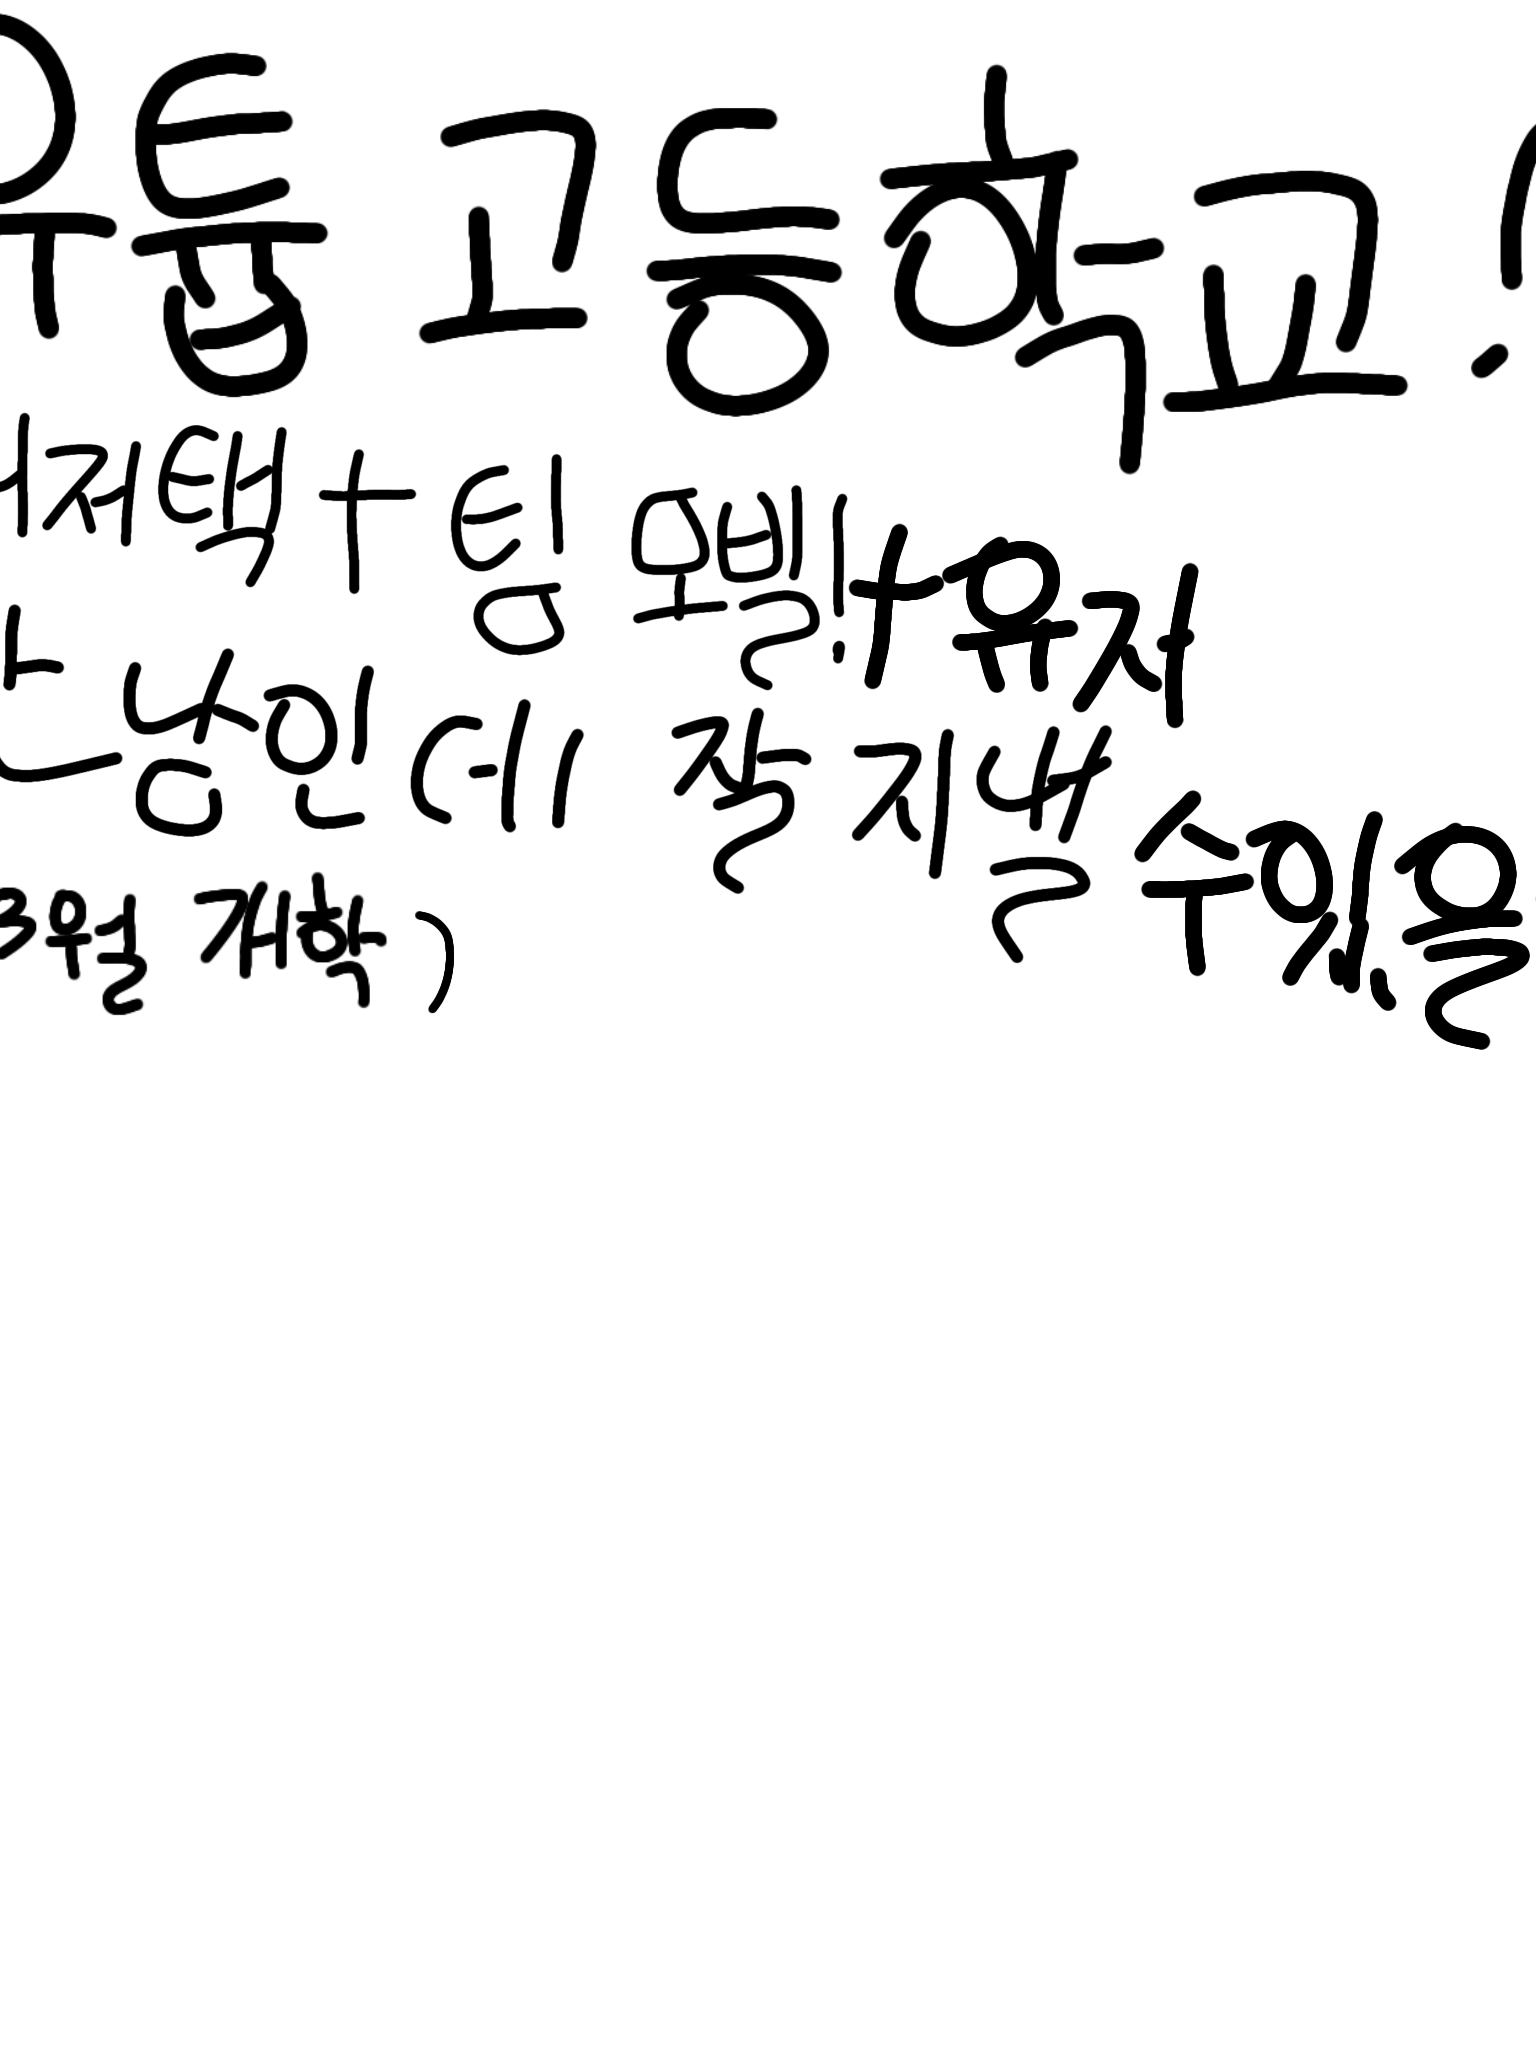 우튭 고등학교!
저택+팀 모빌!+유자
남인데 잘 지낼 수 있을
3월 개학)